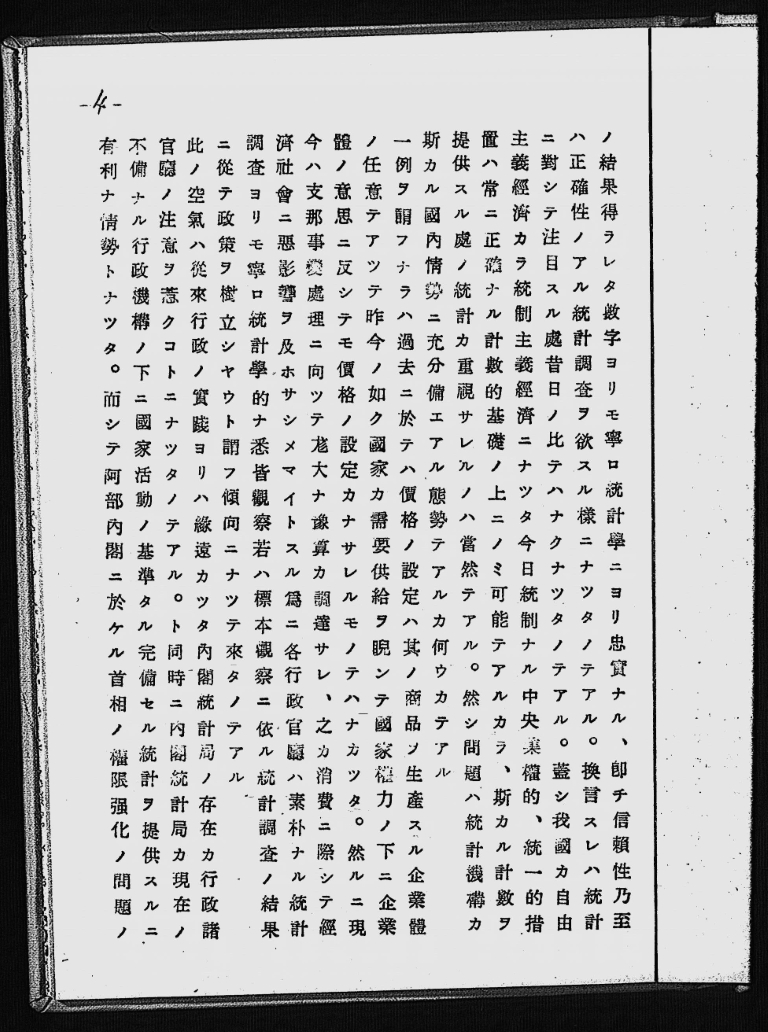 -4-
ノ結果得ラレタ數字ヨリモ寧ロ統計學ニヨリ忠實ナル、卽チ信賴性乃至
ハ正確性ノアル統計調査ヲ欲スル樣ニナツタノテアル。換言スレハ統計
ニ對シテ注目スル處昔日ノ比テハナクナツタノテアル。蓋シ我國カ自由
主義經濟カラ統制主義經濟ニナツタ今日統制ナル中央集權的、統一的措
置ハ常ニ正確ナル計數的基礎ノ上ニノミ可能テアルカラ、斯カル計數ヲ
提供スル處ノ統計カ重視サレルノハ當然テアル。然シ問題ハ統計機構カ
斯カル國內情勢ニ充分備エアル態勢テアルカ何ウカテアル
一例ヲ謂フナラハ過去ニ於テハ價格ノ設定ハ其ノ商品ノ生產スル企業體
ノ任意テアツテ昨今ノ如ク國家カ需要供給ヲ睨ンテ國家權力ノ下ニ企業
體ノ意思ニ反シテモ價格ノ設定カナサレルモノテハナカツタ。然ルニ現
今ハ支那事變處理ニ向ツテ尨大ナ豫算カ調達サレ、之カ消費ニ際シテ經
濟社會ニ惡影響ヲ及ホサシメマイトスル爲ニ各行政官廳ハ素朴ナル統計
調査ヨリモ寧ロ統計學的ナ悉皆觀察若ハ標本觀察ニ依ル統計調査ノ結果
ニ從テ政策ヲ樹立シヤウト謂フ傾向ニナツテ來タノテアル
此ノ空氣ハ從來行政ノ實踐ヨリハ緣遠カツタ內閣統計局ノ存在カ行政諸
官廳ノ注意ヲ惹クコトニナツタノテアル。ト同時ニ內閣統計局カ現在ノ
不備ナル行政機構ノ下ニ國家活動ノ基準タル完備セル統計ヲ提供スルニ
有利ナ情勢トナツタ。而シテ阿部內閣ニ於ケル首相ノ權限强化ノ問題ノ